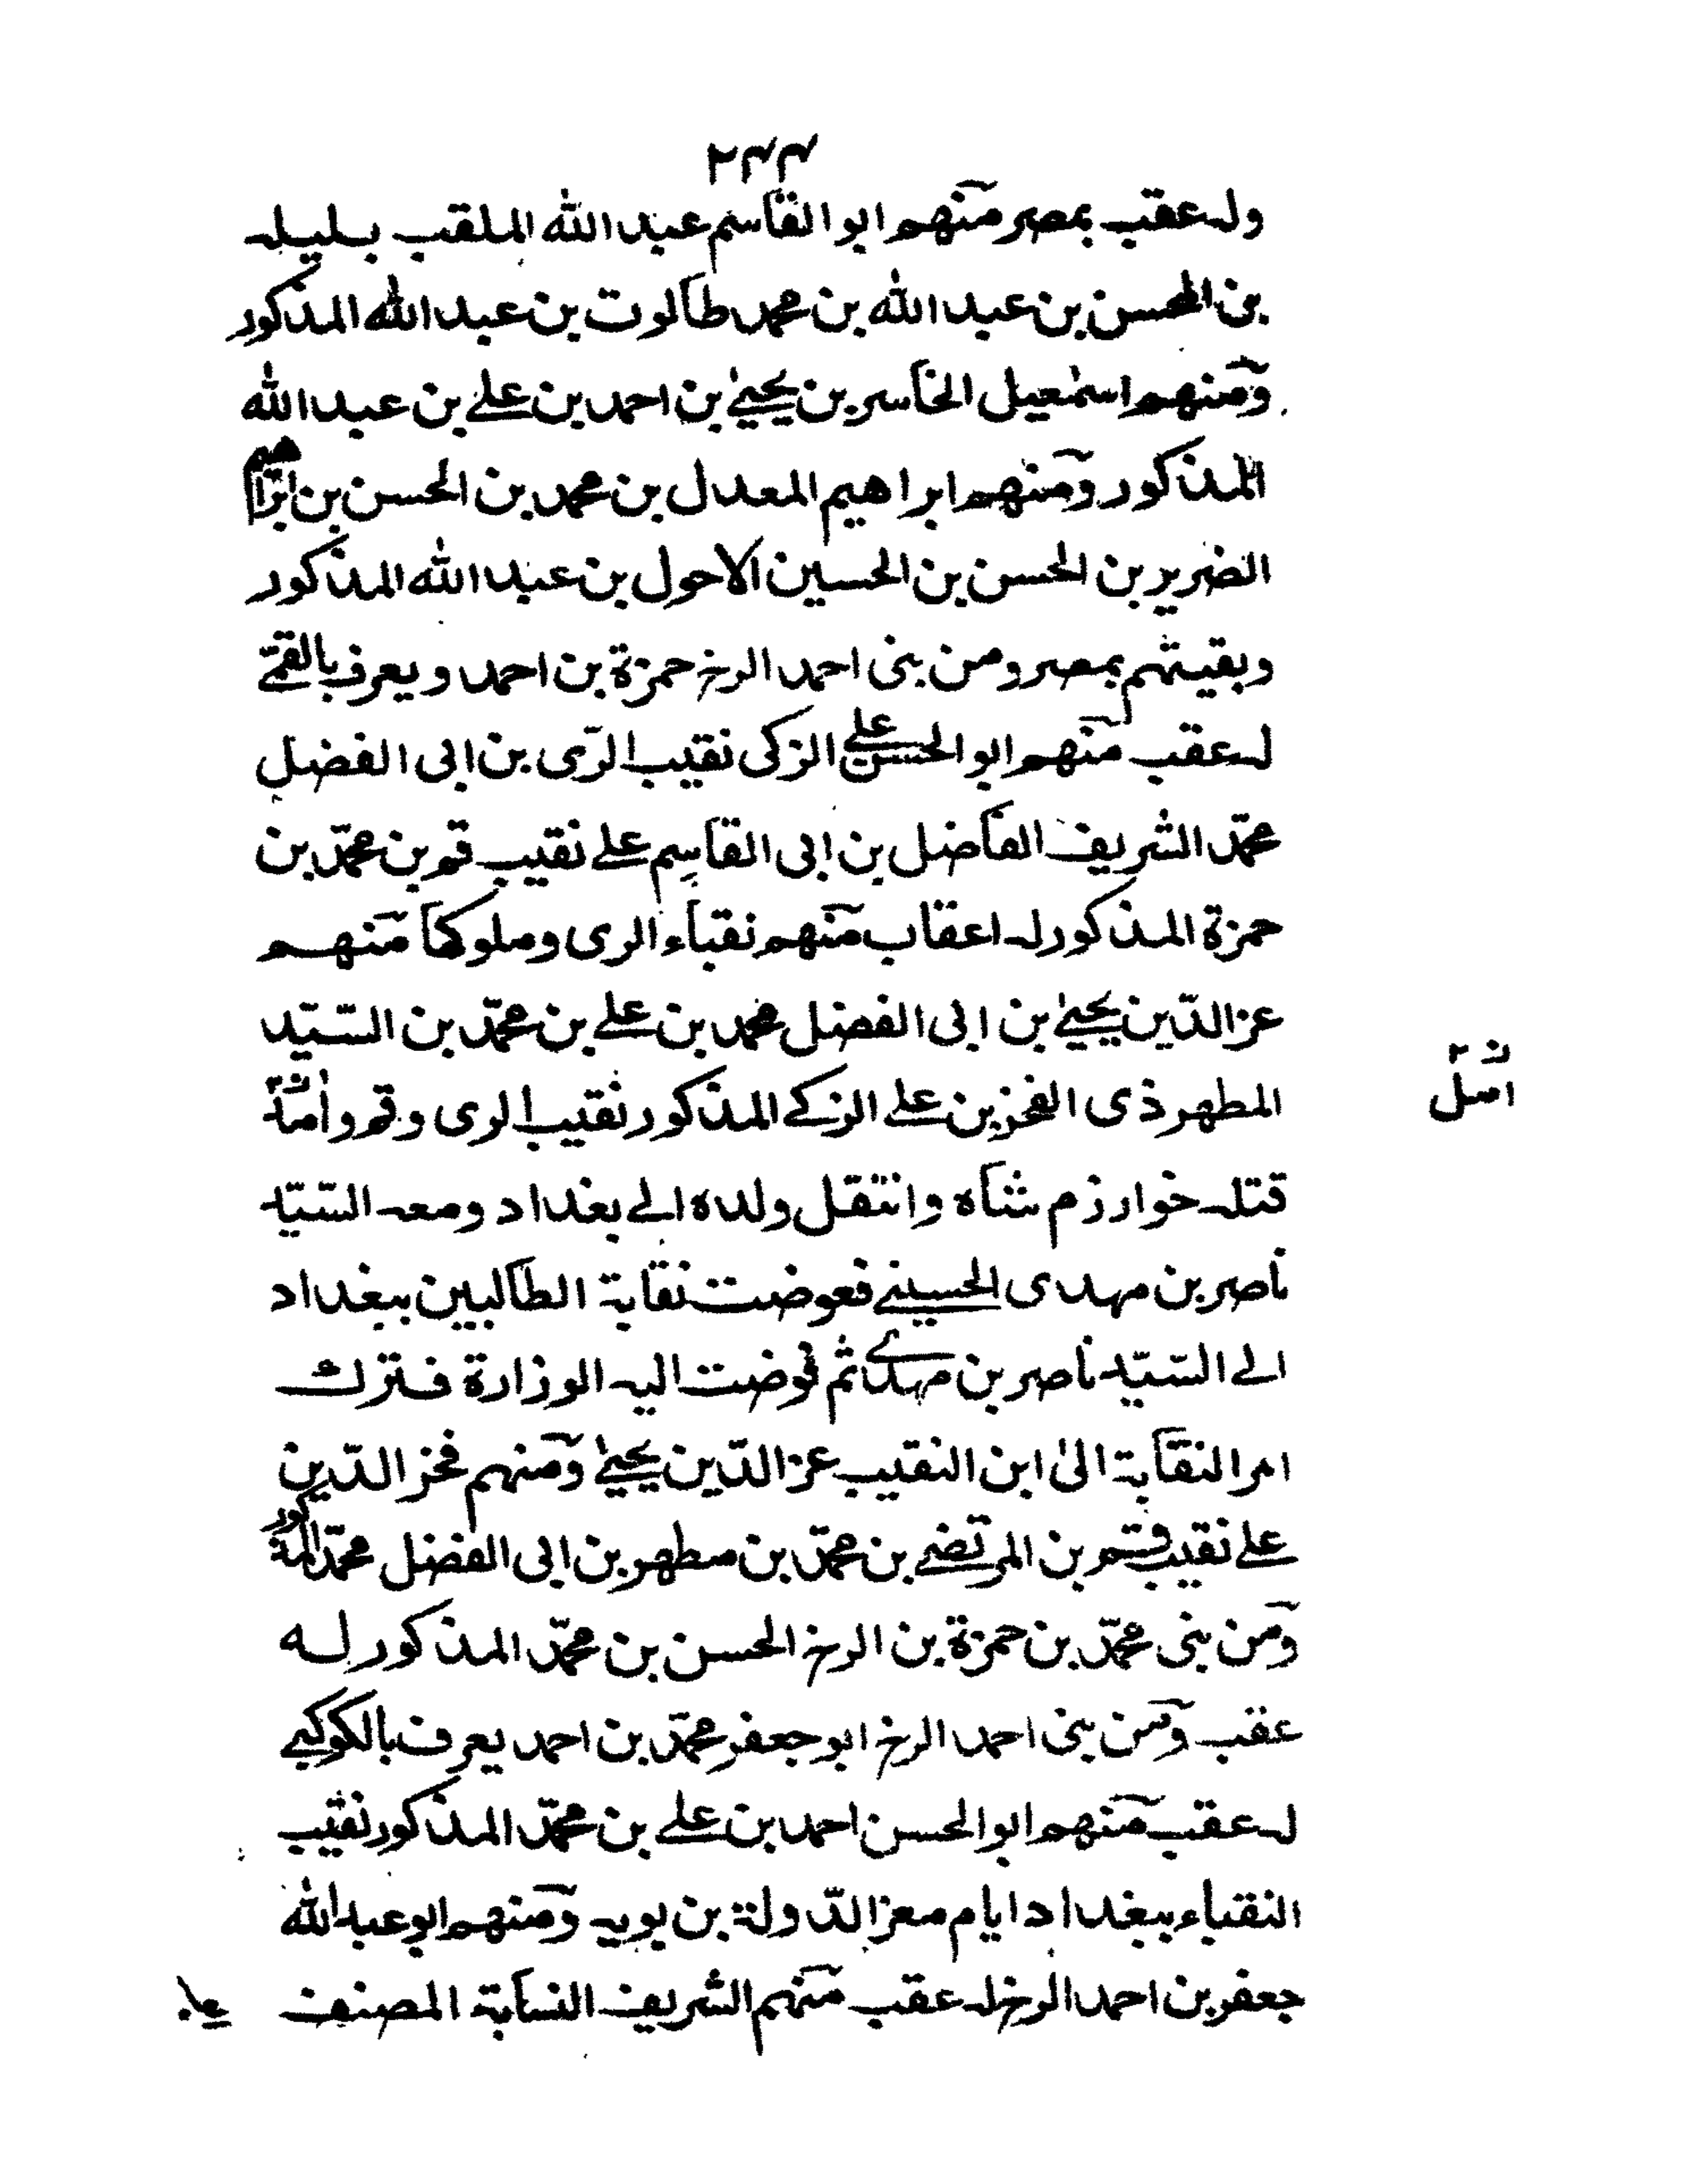 ٢٤٤
وله عقب بمصر منهم ابو القاسم عبد الله الملقب بليله
بن المحسن بن عبد الله بن محمد طالوت بن عبد الله المذكور
ومنهم اسمٰعيل الخاسر بن يحيىٰ بن احمد بن علے بن عبد الله
المذكور ومنهم ابراهيم المعدل بن محمد بن الحسن بن ابراهيم
الضرير بن الحسن بن الحسين الاحول بن عبد الله المذكور
وبقيتهم بمصر ومن بنى احمد الرخ حمزة بن احمد ويعرف بالقمے
له عقب منهم ابو الحسن علے الزكى نقيب الرّى بن ابى الفضل
محمّد الشريف الفاضل بن ابى القاسم علے نقيب قم بن محمّد بن
حمزة المذكور له اعقاب منهم نقباء الرى وملوكها منهم
عز الدّين يحيىٰ بن ابى الفضل محمد بن علے بن محمّد بن السّيّد
المطهر ذى الفخرين علے الزكے المذكور نقيب الرى وقم و
امل
قتله خوارزم شاه وانتقل ولده الے بغداد ومعه السّيّد
ناصر بن مهدى الحسينے فعوضت نقابة الطالبين ببغداد
الے السّيّد ناصر بن مهدے ثم فوضت اليه الوزارة فترك
امر النقابة الىٰ ابن النقيب عز الدّين يحيىٰ ومنهم فخر الدّين
علے نقيب قم بن المرتضے بن محمّد بن مطهر بن ابى الفضل محمّد المذكور
ومن بنى محمّد بن حمزة بن الرخ الحسن بن محمّد المذكور له
عقب ومن بنى احمد الرخ ابو جعفر محمّد بن احمد يعرف بالكوكبے
له عقب منهم ابو الحسن احمد بن علے بن محمّد المذكور نقيب
النقباء ببغداد ايام معز الدّولة بن بويه ومنهم ابو عبد الله
جعفر بن احمد الرخ له عقب منهم الشريف النسابة المصنف